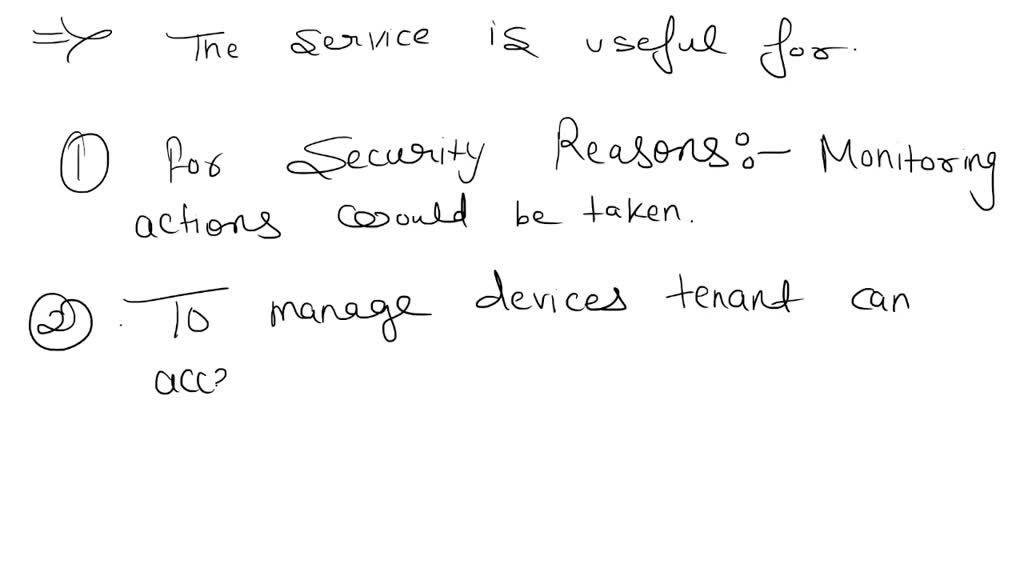 ⇒ The service is useful for.
① For Security Reasons:- Monitoring
actions would be taken.
② To manage devices tenant can
acc